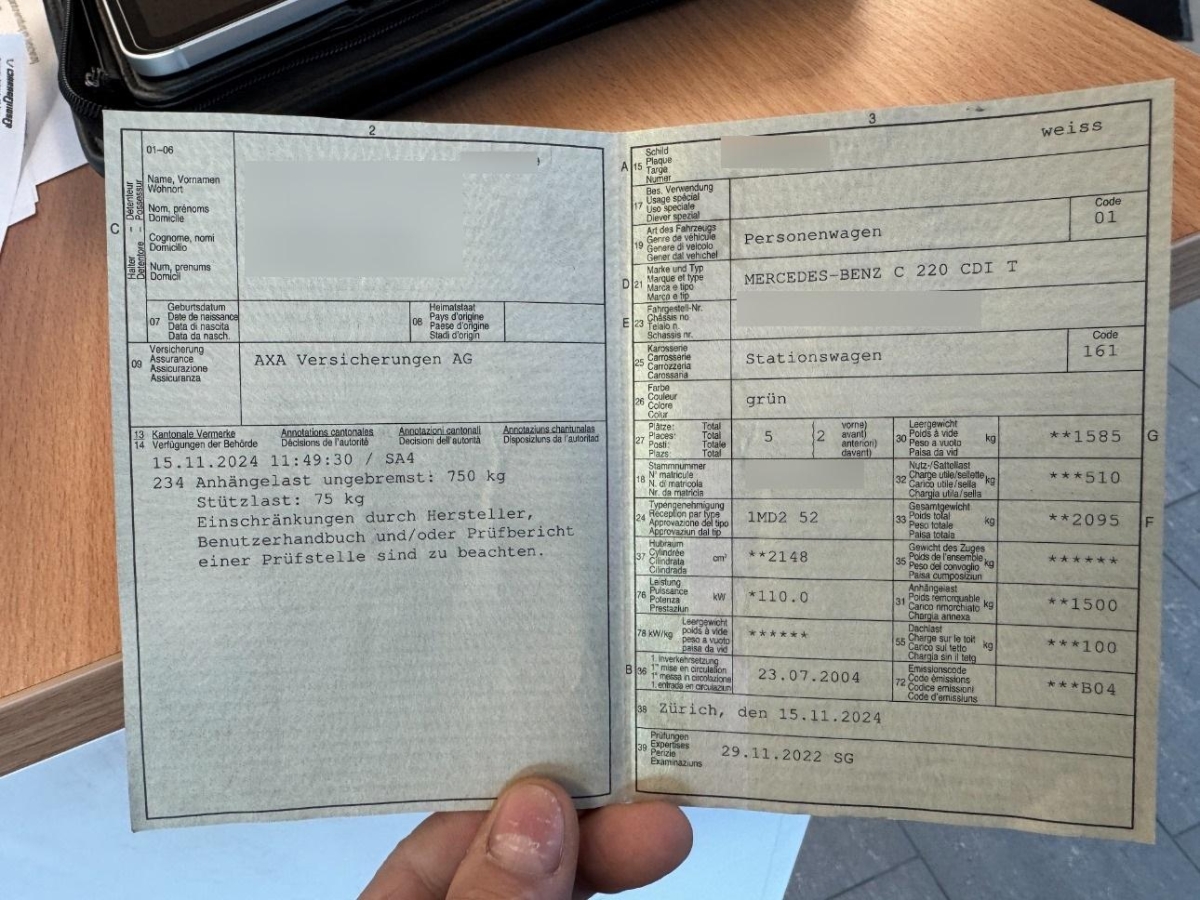 2
01-06
C
Halter – Détenteur
Detentore – Possessur
Name, Vornamen
Wohnort
Nom, prénoms
Domicile
Cognome, nomi
Domicilio
Num, prenums
Domicil
07
Geburtsdatum
Date de naissance
Data di nascita
Data da nasch.
08
Heimatstaat
Pays d'origine
Paese d'origine
Stadi d'origin
09
Versicherung
Assurance
Assicurazione
Assicuranza
AXA Versicherungen AG
13 Kantonale Vermerke Annotations cantonales Annotazioni cantonali Annotaziuns chantunalas
14 Verfügungen der Behörde Décisions de l'autorité Decisioni dell'autorità Disposiziuns da l'autoritad
15.11.2024 11:49:30 / SA4
234 Anhängelast ungebremst: 750 kg
Stützlast: 75 kg
Einschränkungen durch Hersteller,
Benutzerhandbuch und/oder Prüfbericht
einer Prüfstelle sind zu beachten.
3
weiss
A 15
Schild
Plaque
Targa
Numer
17
Bes. Verwendung
Usage spécial
Uso speciale
Diever spezial
19
Art des Fahrzeugs
Genre de véhicule
Genere di veicolo
Gener dal vehichel
Personenwagen
Code
01
D 21
Marke und Typ
Marque et type
Marca e tipo
Marca e tip
MERCEDES-BENZ C 220 CDI T
E 23
Fahrgestell-Nr.
Châssis no
Telaio n.
Schassis nr.
25
Karosserie
Carrosserie
Carrozzeria
Carossaria
Stationswagen
Code
161
26
Farbe
Couleur
Colore
Colur
grün
27
Plätze: Total
Places: Total
Posti: Totale
Plazs: Total
5
2
vorne)
avant)
anteriori)
davant)
30
Leergewicht
Poids à vide
Peso a vuoto
Paisa da vid
kg
**1585
G
18
Stammnummer
N° matricule
N. di matricola
Nr. da matricla
32
Nutz-/Sattellast
Charge utile/sellette
Carico utile/sella
Chargia utila/sella
kg
***510
24
Typengenehmigung
Réception par type
Approvazione del tipo
Approvaziun dal tip
1MD2 52
33
Gesamtgewicht
Poids total
Peso totale
Paisa totala
kg
**2095
F
37
Hubraum
Cylindrée
Cilindrata
Cilindrada
cm³
**2148
35
Gewicht des Zuges
Poids de l'ensemble
Peso del convoglio
Paisa cumposiziun
kg
******
76
Leistung
Puissance
Potenza
Prestaziun
kW
*110.0
31
Anhängelast
Poids remorquable
Carico rimorchiato
Chargia annexa
kg
**1500
78 kW/kg
Leergewicht
poids à vide
peso a vuoto
paisa da vid
******
55
Dachlast
Charge sur le toit
Carico sul tetto
Chargia sin il tetg
kg
***100
B 36
1. Inverkehrsetzung
1re mise en circulation
1a messa in circolazione
1. entrada en circulaziun
23.07.2004
72
Emissionscode
Code émissions
Codice emissioni
Code d'emissiuns
***B04
38 Zürich, den 15.11.2024
39
Prüfungen
Expertises
Perizie
Examinaziuns
29.11.2022 SG